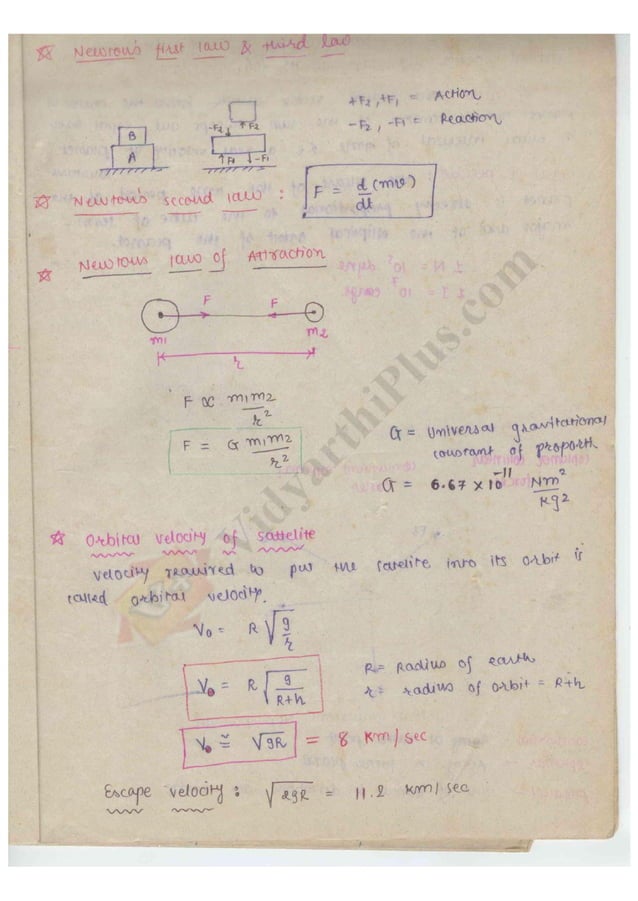 ☆ Newtons first law & third law
+F2, +F1 = Action
-F2, -F1 = Reaction
B
A
-F2 ↑F2
↑F1 ↓-F1
☆ Newtons second law : F = d/dt (mv)
☆ Newtons law of Attraction
F F
m1 m2
r
F ∝ m1m2/r²
F = G m1m2/r²
G = Universal gravitational
constant of proporth
G = 6.67 × 10⁻¹¹ Nm²/kg2
☆ Orbital velocity of sattelite
velocity required to put the satelite into its orbit is
called orbital velocity.
V0 = R √(g/r)
V0 = R √(g/(R+h))
R = Radius of earth
r = radius of orbit = R+h
V0 ≅ √gR = 8 km/sec
Escape velocity : √2gR = 11.2 km/sec
VidyarthiPlus.com